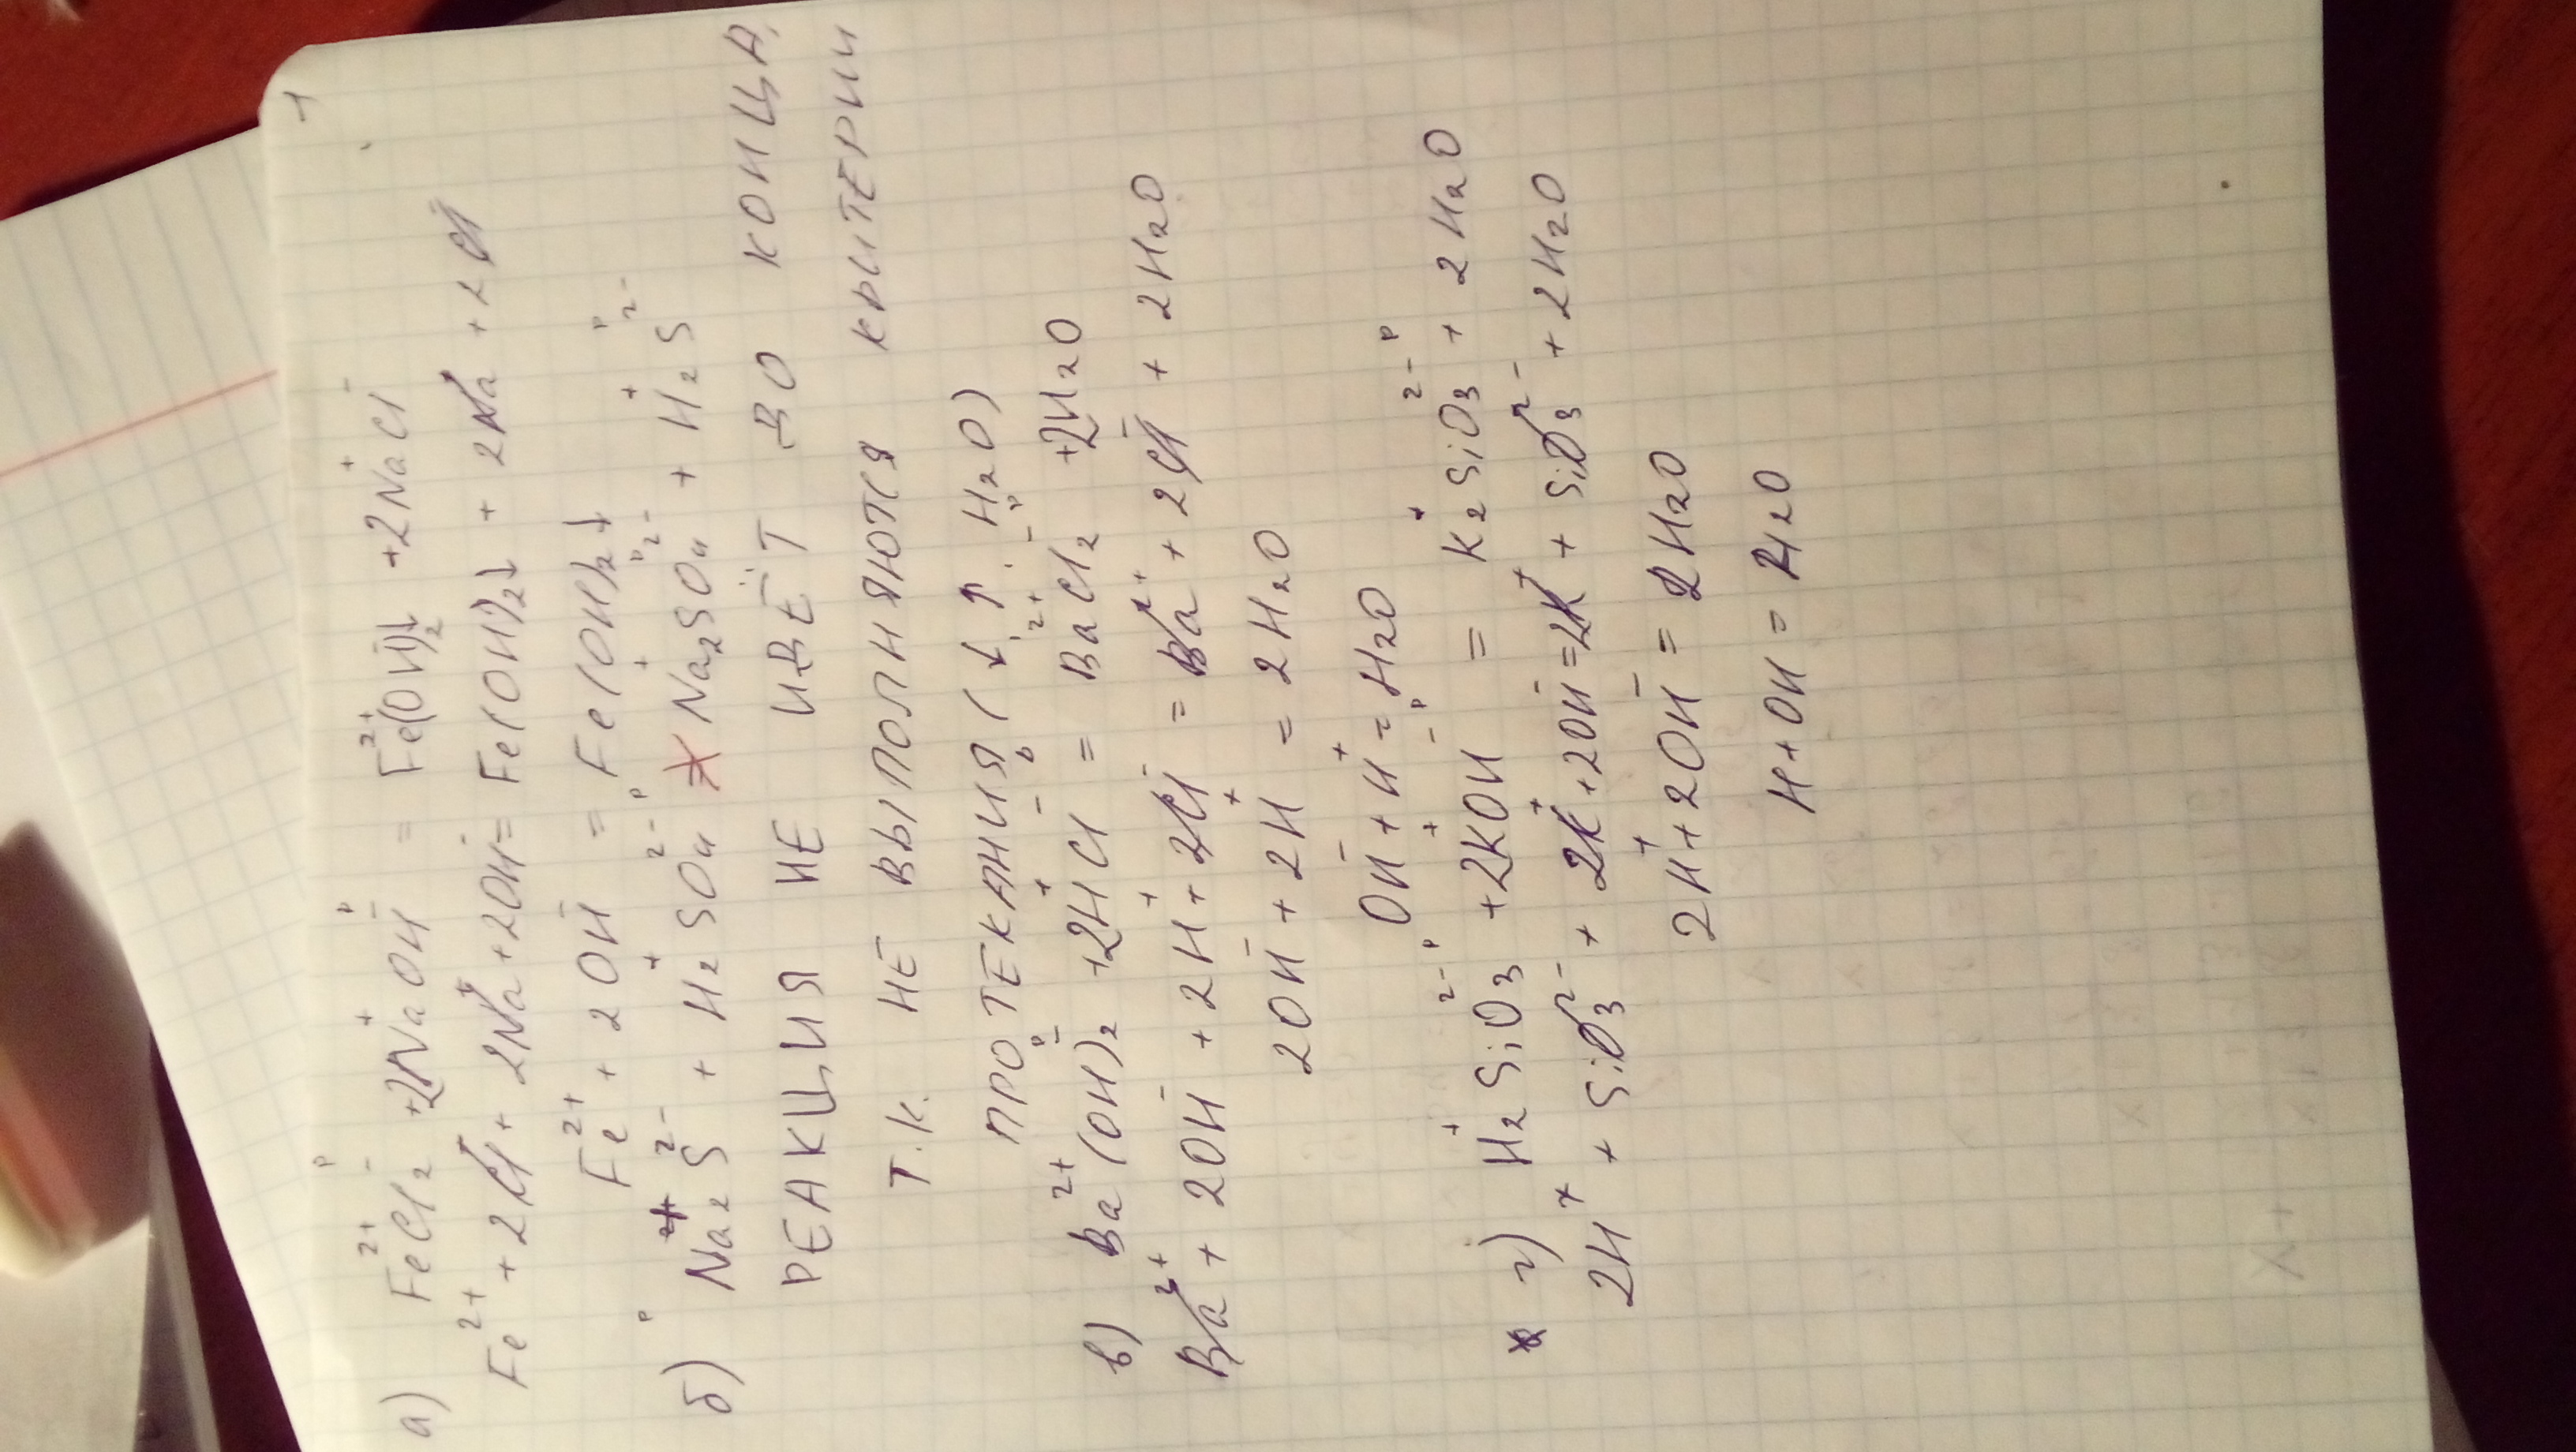 1
а) Fe²⁺Cl₂⁻ + 2Na⁺OH⁻ = Fe²⁺(OH)⁻₂↓ + 2Na⁺Cl⁻
Fe²⁺ + 2Cl⁻ + 2Na⁺ + 2OH⁻ = Fe(OH)₂↓ + 2Na⁺ + 2Cl⁻
Fe²⁺ + 2OH⁻ = Fe(OH)₂↓
б) Na₂⁺S²⁻ + H₂⁺SO₄²⁻ ≠ Na₂⁺SO₄²⁻ + H₂⁺S²⁻
РЕАКЦИЯ НЕ ИДЁТ ДО КОНЦА,
Т.К. НЕ ВЫПОЛНЯЮТСЯ КРИТЕРИИ
ПРОТЕКАНИЯ (↓, ↑, H₂O)
в) Ba²⁺(OH)₂⁻ + 2H⁺Cl⁻ = Ba²⁺Cl₂⁻ + 2H₂O
Ba²⁺ + 2OH⁻ + 2H⁺ + 2Cl⁻ = Ba²⁺ + 2Cl⁻ + 2H₂O
2OH⁻ + 2H⁺ = 2H₂O
OH⁻ + H⁺ = H₂O
г) H₂⁺SiO₃²⁻ + 2K⁺OH⁻ = K₂⁺SiO₃²⁻ + 2H₂O
2H⁺ + SiO₃²⁻ + 2K⁺ + 2OH⁻ = 2K⁺ + SiO₃²⁻ + 2H₂O
2H⁺ + 2OH⁻ = 2H₂O
H + OH = H₂O